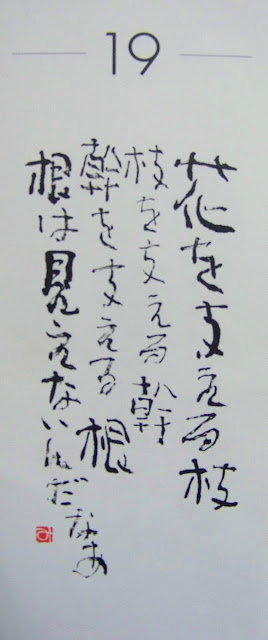 19
花を支える枝
枝を支える幹
幹を支える根
根は見えないんだなあ
み